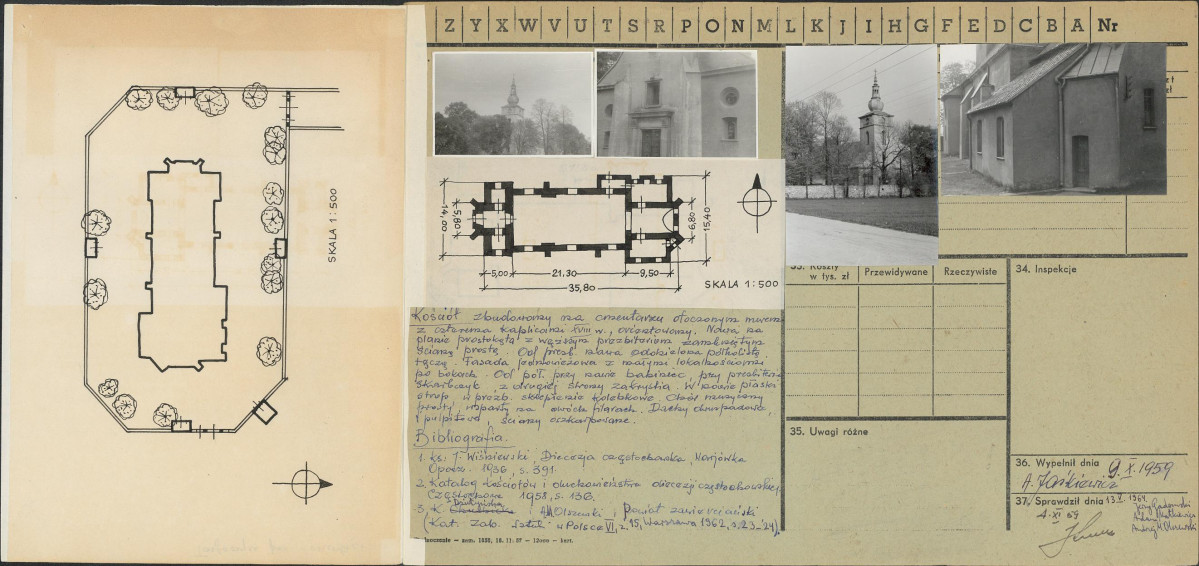 Z Y X W V U T S R P O N M L K J I H G F E D C B A Nr
SKALA 1:500
14,00
5,80
6,80
15,40
5,00
21,30
9,50
35,80
SKALA 1:500
Kościół zbudowany na cmentarzu otoczonym murem
z czterema kaplicami XVIII w., orientowany. Nawa na
planie prostokąta z węższym prezbiterium zamkniętym
ścianą prostą. Od prezb. nawa oddzielona półkolistą
tęczą. Fasada jednowieżowa z małymi lokalnościami
po bokach. Od półn. przy nawie babiniec, przy prezbiterium
skarbczyk z drugiej strony zakrystia. W nawie płaski
strop w prezb. sklepienie kolebkowe. Chór muzyczny
prosty wsparty na dwóch filarach. Dachy dwuspadowe,
i pulpitowe, ściany oszkarpowane.
Bibliografia.
1. ks. J. Wiśniewski, Diecezja częstochowska, Marjówka
Opocz. 1936, s. 391.
2. Katalog kościołów i duchowieństwa diecezji częstochowskiej
Częstochowa 1958, s. 136.
3. K. A.M. Olszewski, Powiat zawierciański
(Kat. Zab. Sztuki w Polsce VI, z. 15, Warszawa 1962, s. 23-24).
33. Koszty w tys. zł
Przewidywane
Rzeczywiste
34. Inspekcje
35. Uwagi różne
36. Wypełnił dnia 9.X.1959
A. Jaśkiewicz
37. Sprawdził dnia 13.V.1964
4.XI.59
zł
zł